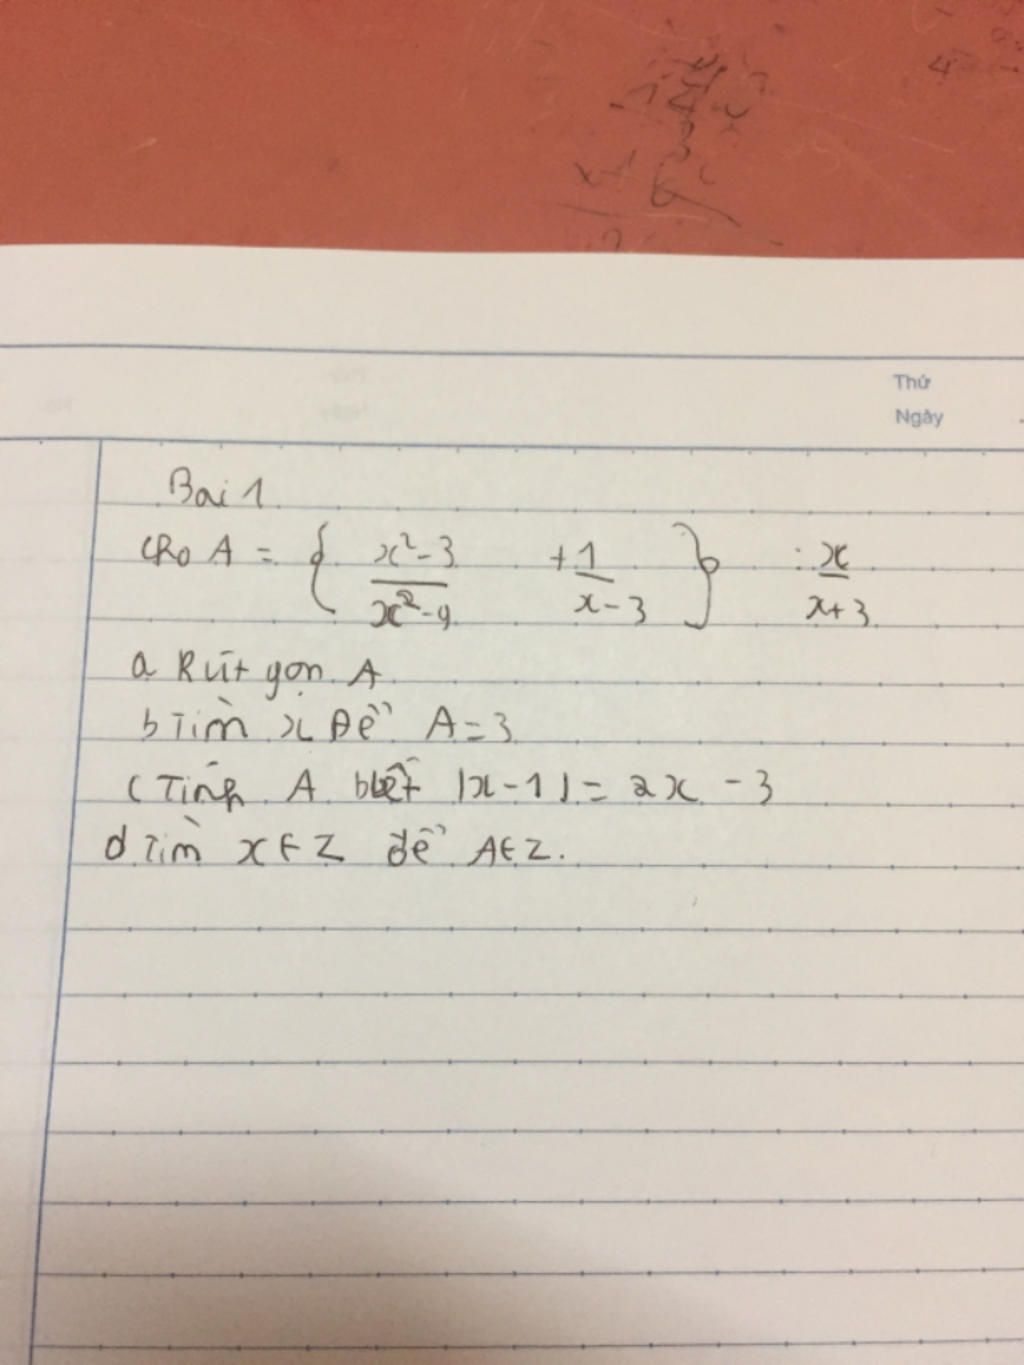 Thứ
Ngày
Bai 1
cho A = { x²-3 / x²-9 + 1 / x-3 } : x / x+3
a Rút gọn A
b Tìm x Để A = 3
c Tính A biết |x-1| = 2x - 3
d Tìm x ∈ Z để A ∈ Z.